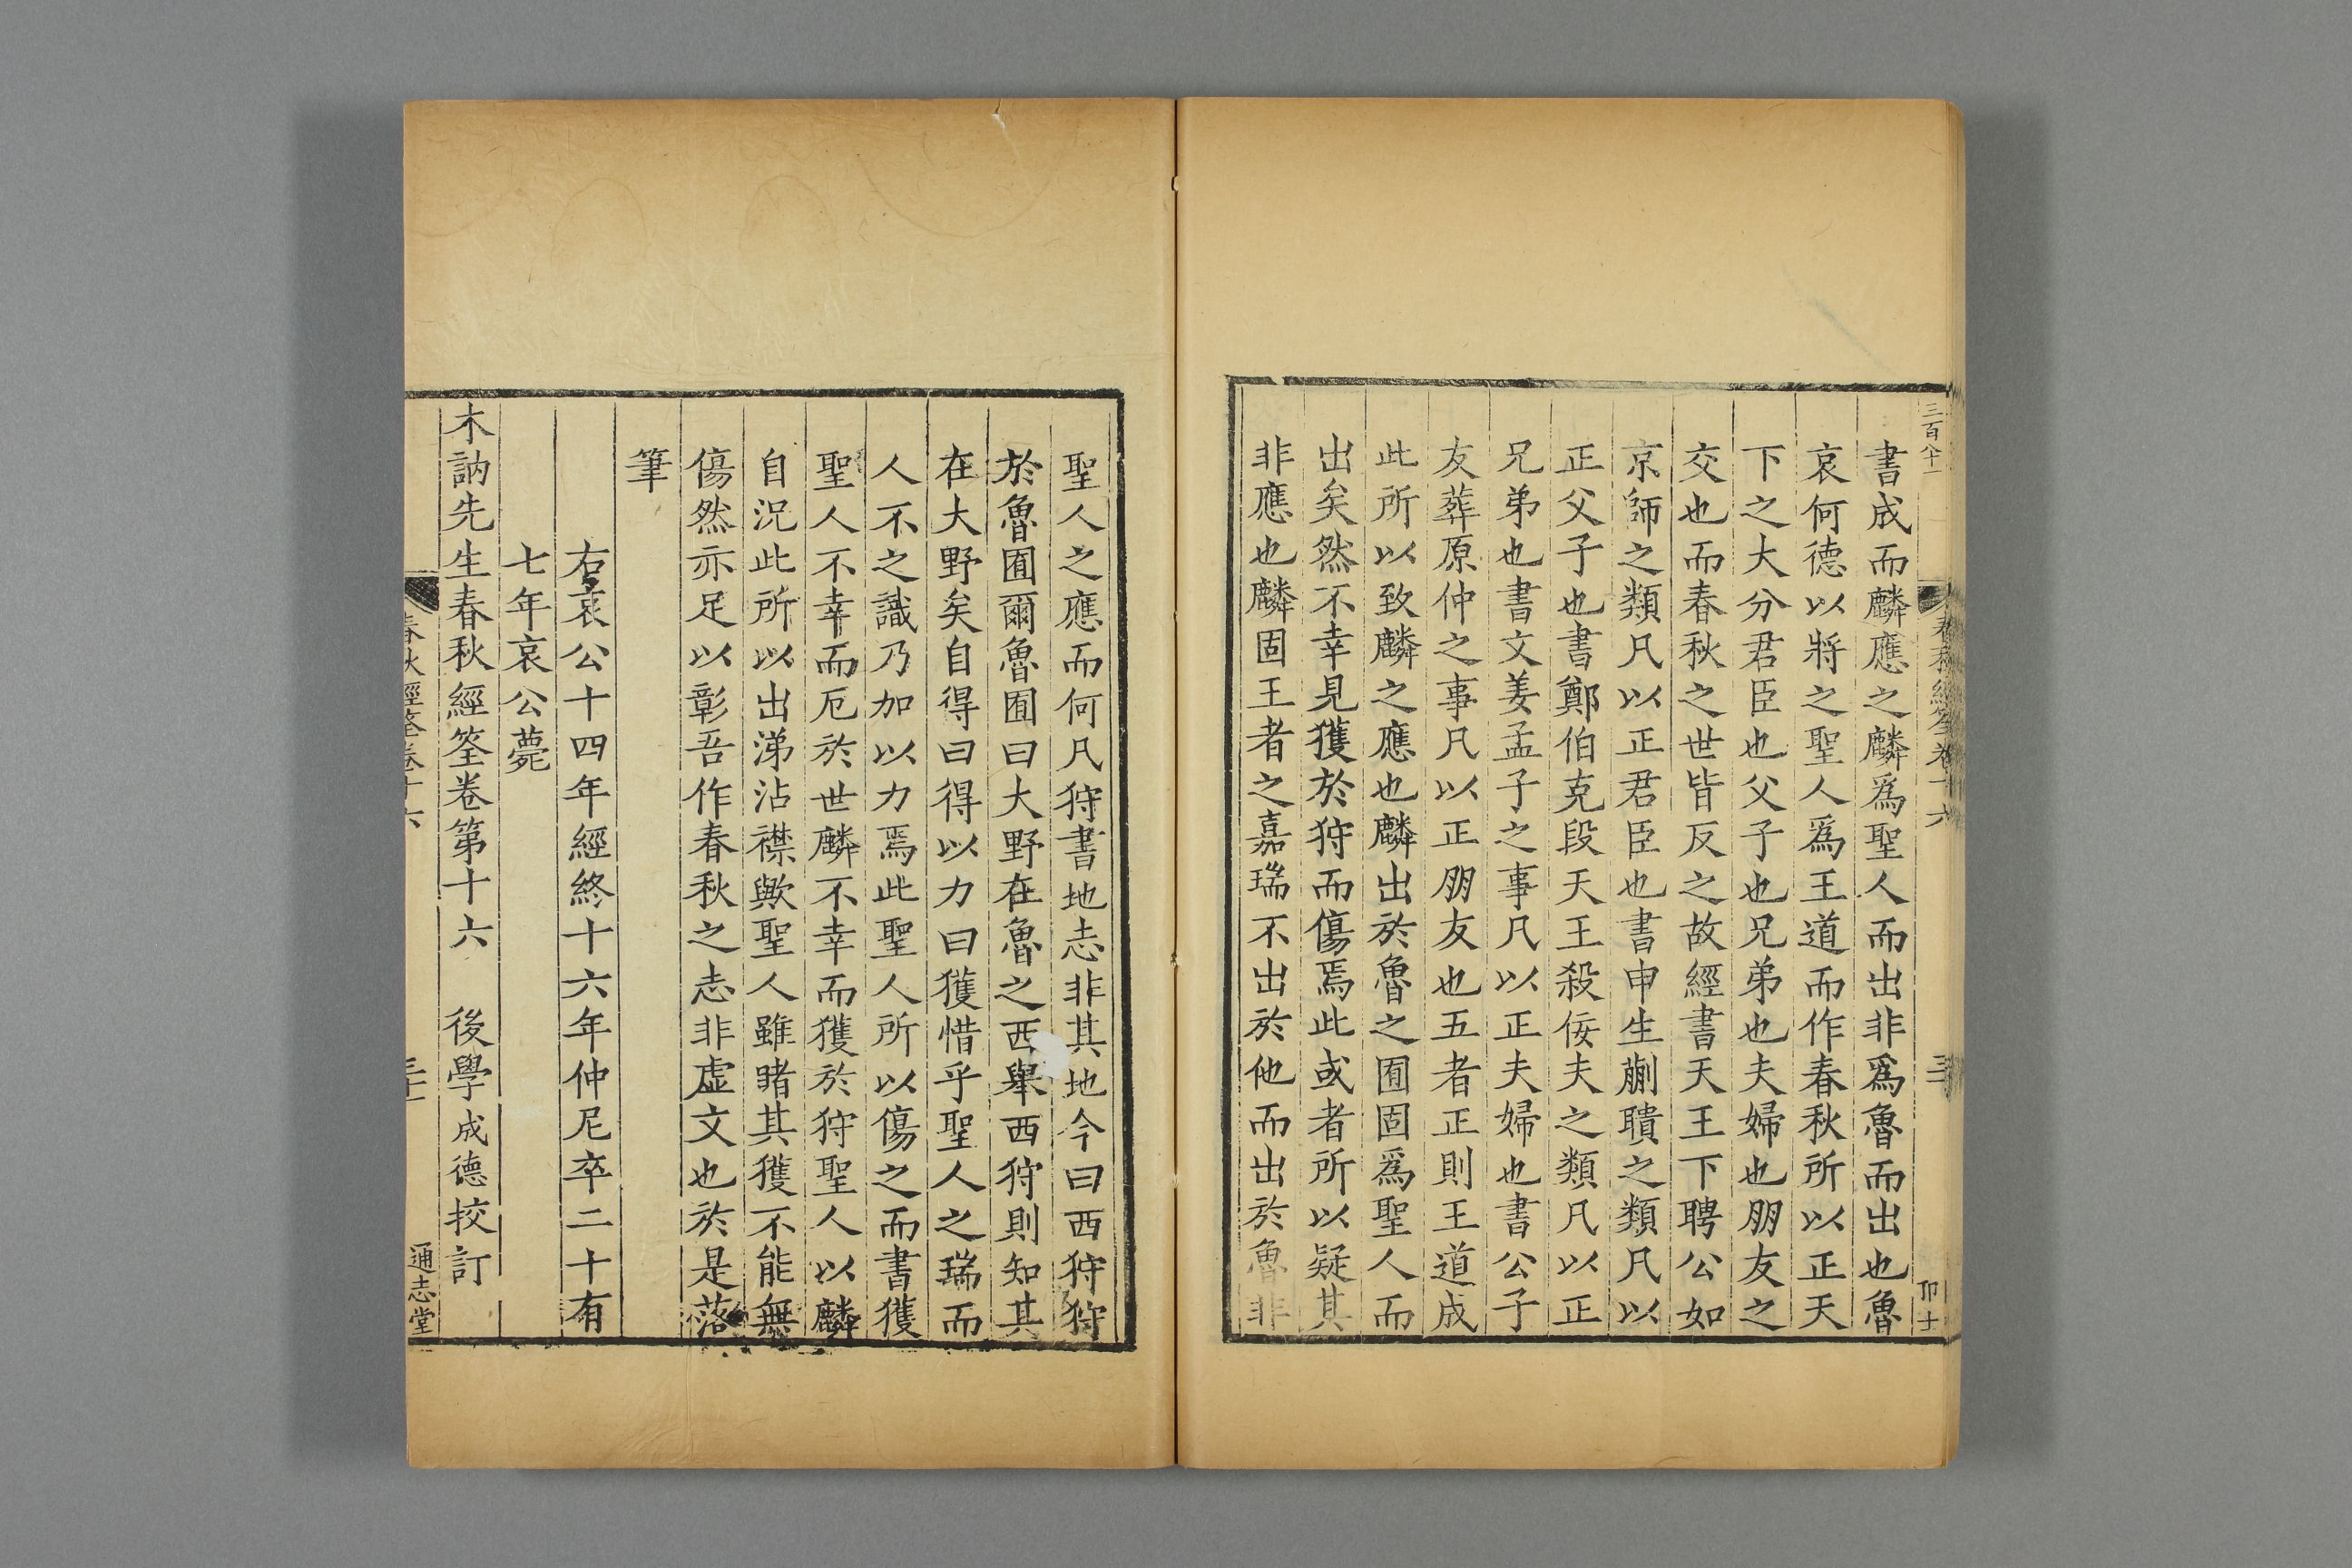 三百八十一
春秋經筌卷十六
書成而麟應之麟爲聖人而出非爲魯而出也魯
哀何德以將之聖人爲王道而作春秋所以正天
下之大分君臣也父子也兄弟也夫婦也朋友之
交也而春秋之世皆反之故經書天王下聘公如
京師之類凡以正君臣也書申生蒯聵之類凡以
正父子也書鄭伯克段天王殺佞夫之類凡以正
兄弟也書文姜孟子之事凡以正夫婦也書公子
友葬原仲之事凡以正朋友也五者正則王道成
此所以致麟之應也麟出於魯之囿固爲聖人而
出矣然不幸見獲於狩而傷焉此或者所以疑其
非應也麟固王者之嘉瑞不出於他而出於魯非
聖人之應而何凡狩書地志非其地今曰西狩狩
於魯囿爾魯囿曰大野在魯之西舉西狩則知其
在大野矣自得曰得以力曰獲惜乎聖人之瑞而
人不之識乃加以力焉此聖人所以傷之而書獲
聖人不幸而厄於世麟不幸而獲於狩聖人以麟
自況此所以出涕沾襟歟聖人雖睹其獲不能無
傷然亦足以彰吾作春秋之志非虛文也於是落
筆
右哀公十四年經終十六年仲尼卒二十有
七年哀公薨
木訥先生春秋經筌卷第十六　後學成德挍訂
春秋經筌卷十六
通志堂